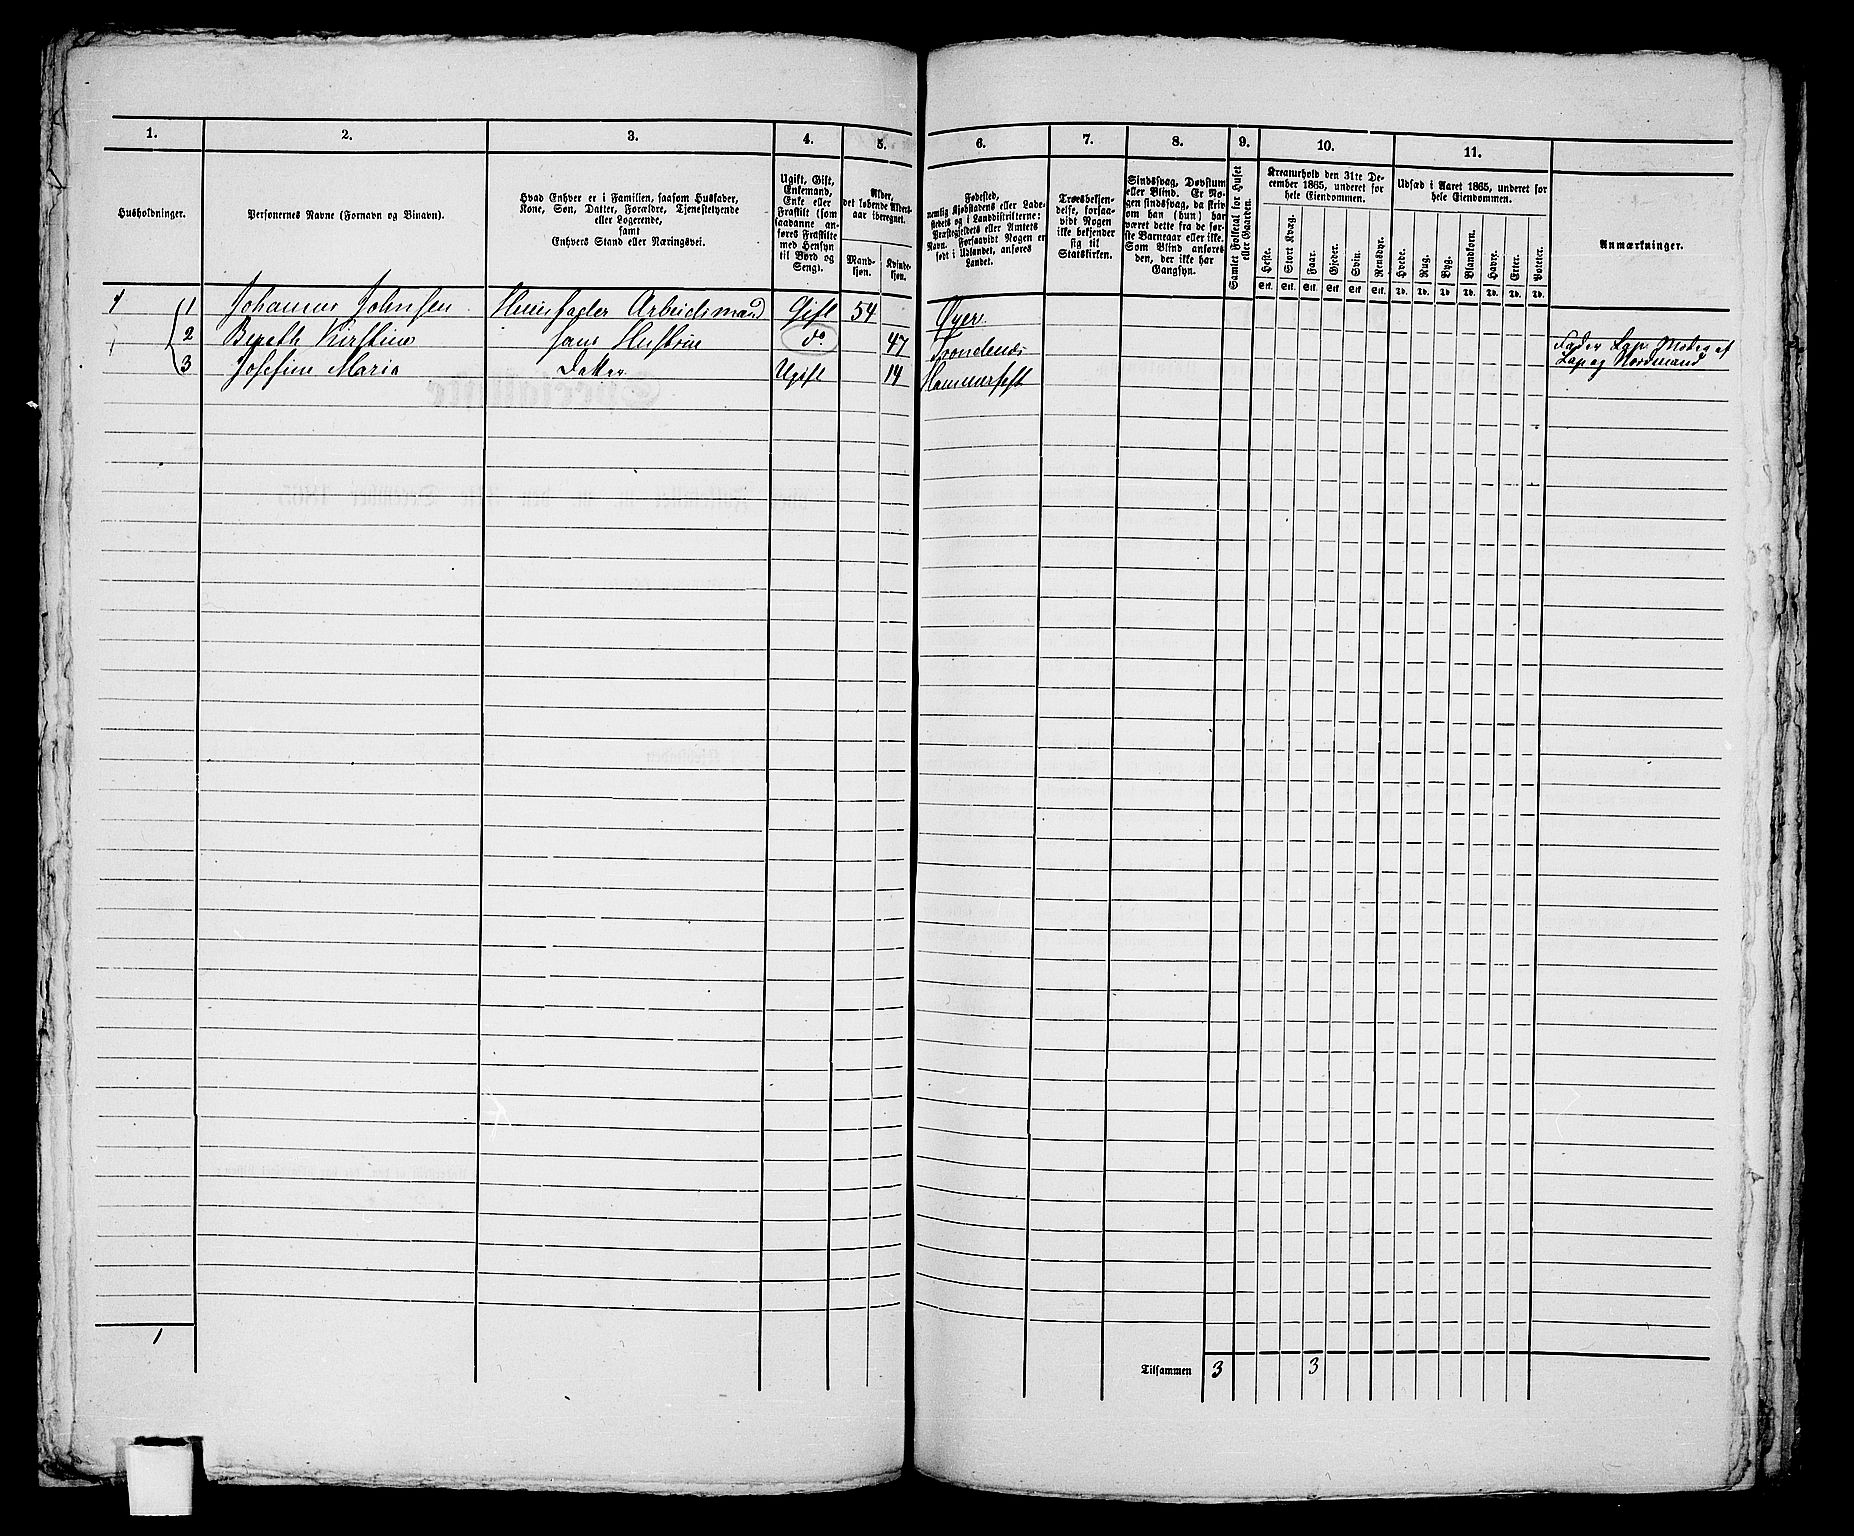 1. 2. 3. 4. 5. 6. 7. 8. 9. 10. 11.
Husholdninger.
Personernes Navne (Fornavn og Binavn).
Hvad Enhver er i Familien, saasom Husfader,
Kone, Søn, Datter, Forældre, Tjenestetyende
eller Logerende,
samt
Enhvers Stand eller Næringsvei.
Ugift, Gift,
Enkemand,
Enke eller
Fraskilt (som
saadanne an-
føres Fraskilte
med Hensyn
til Bord og
Seng).
Alder,
det løbende Alders-
aar iberegnet.
Mand-
kjøn.
Kvinde-
kjøn.
Fødested,
nemlig Kjøbstadens eller Lade-
stedets og i Landdistrikterne:
Præstegjeldets eller Amtets
Navn. Forsaavidt Nogen er
født i Udlandet, anføres
Landet.
Troesbekjen-
delse, forsaa-
vidt Nogen
ikke bekjender
sig til
Statskirken.
Sindssvag, Døvstum
eller Blind. Er No-
gen sindssvag, da skriv
om han (hun) har
været dette fra de før-
ste Barneaar eller ikke.
Som Blind anføres
den, der ikke har
Gangsyn.
Samlet Folketal for Huset
eller Gaarden.
Kreaturhold den 31te De-
cember 1865, underet for
hele Eiendommen.
Heste. Stort Kvæg. Faar. Gjeder. Svin. Rensdyr.
Stk. Stk. Stk. Stk. Stk. Stk.
Udsæd i Aaret 1865, underet for
hele Eiendommen.
Hvede. Rug. Byg. Blandkorn. Havre. Erter. Poteter.
Td. Td. Td. Td. Td. Td. Td.
Anmærkninger.
1 1 Johannes Johnsen Huusfader Arbeidsmand Gift 54 Øyer
2 Bereth Kirstine hans Hustrue do 47 Trondenæs Fader Lap. Moder af
Lap og Nordmand
3 Josefine Maria Datter Ugift 14 Hammerfest
1
Tilsammen 3 3